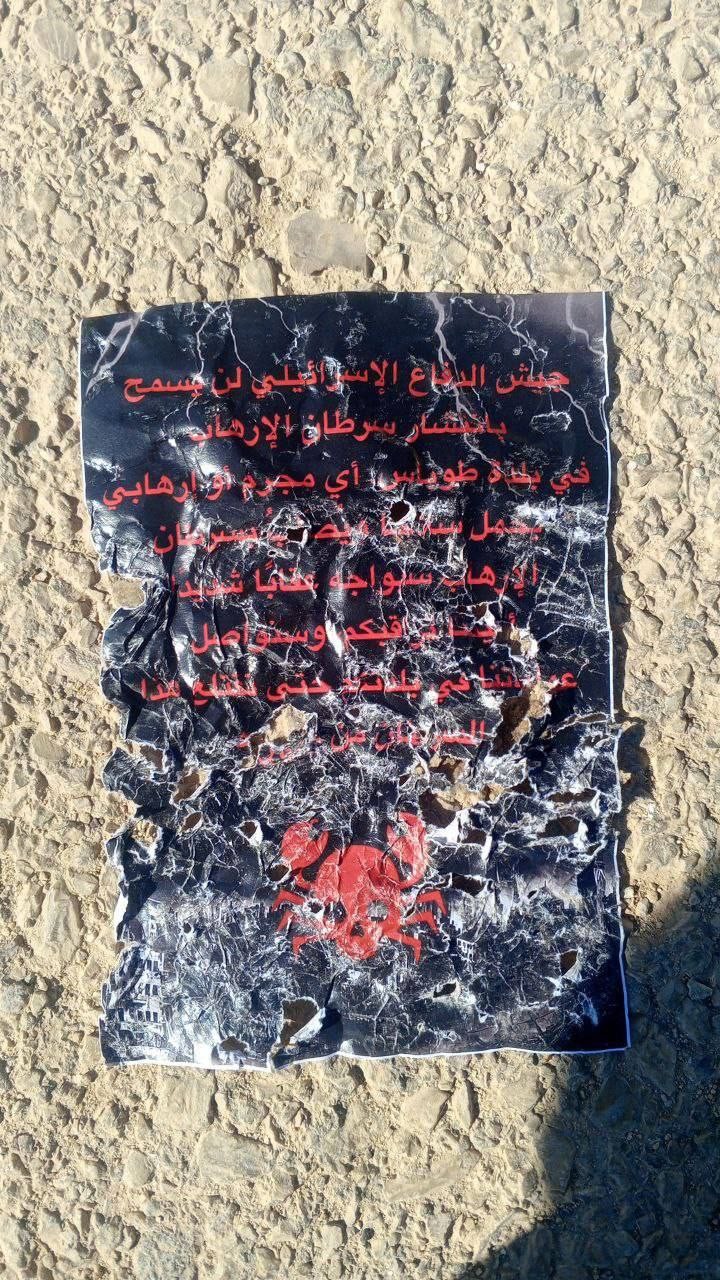 جيش الدفاع الإسرائيلي لن يسمح
بانتشار سرطان الإرهاب
في بلدة طوباس، أي مجرم أو إرهابي
يحمل سلاحًا سرطان
الإرهاب سيواجه عقابًا شديدًا
نراقبكم، وسنواصل
عملياتنا في بلدتكم حتى نقتلع هذا
السرطان من